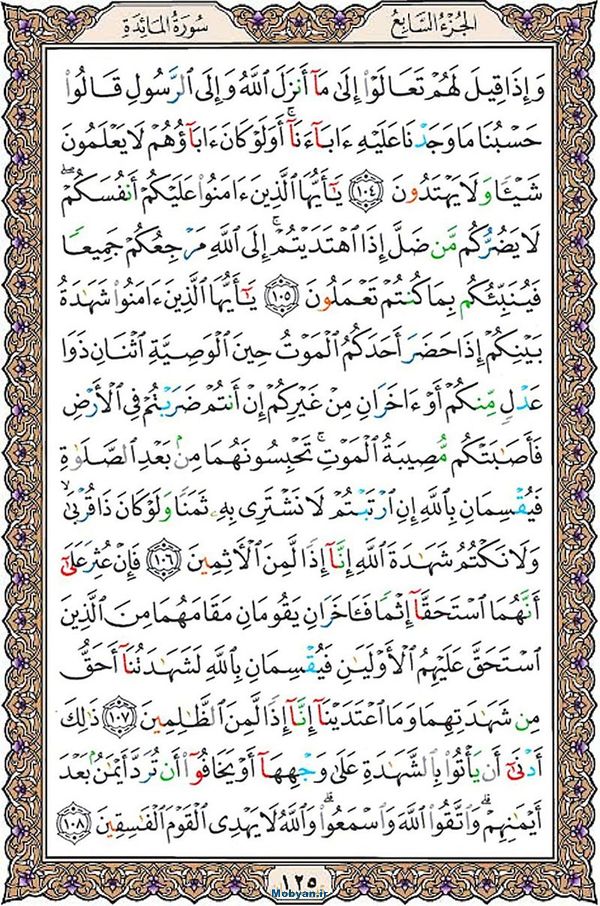 الجُزْءُ السَّابِع
سُورَةُ المَائِدَةِ
وَإِذَا قِيلَ لَهُمْ تَعَالَوْا۟ إِلَىٰ مَآ أَنزَلَ ٱللَّهُ وَإِلَى ٱلرَّسُولِ قَالُوا۟
حَسْبُنَا مَا وَجَدْنَا عَلَيْهِ ءَابَآءَنَآ ۚ أَوَلَوْ كَانَ ءَابَآؤُهُمْ لَا يَعْلَمُونَ
شَيْـًٔا وَلَا يَهْتَدُونَ ١٠٤ يَـٰٓأَيُّهَا ٱلَّذِينَ ءَامَنُوا۟ عَلَيْكُمْ أَنفُسَكُمْ ۖ
لَا يَضُرُّكُم مَّن ضَلَّ إِذَا ٱهْتَدَيْتُمْ ۚ إِلَى ٱللَّهِ مَرْجِعُكُمْ جَمِيعًا
فَيُنَبِّئُكُم بِمَا كُنتُمْ تَعْمَلُونَ ١٠٥ يَـٰٓأَيُّهَا ٱلَّذِينَ ءَامَنُوا۟ شَهَـٰدَةُ
بَيْنِكُمْ إِذَا حَضَرَ أَحَدَكُمُ ٱلْمَوْتُ حِينَ ٱلْوَصِيَّةِ ٱثْنَانِ ذَوَا
عَدْلٍ مِّنكُمْ أَوْ ءَاخَرَانِ مِنْ غَيْرِكُمْ إِنْ أَنتُمْ ضَرَبْتُمْ فِى ٱلْأَرْضِ
فَأَصَـٰبَتْكُم مُّصِيبَةُ ٱلْمَوْتِ ۚ تَحْبِسُونَهُمَا مِنۢ بَعْدِ ٱلصَّلَوٰةِ
فَيُقْسِمَانِ بِٱللَّهِ إِنِ ٱرْتَبْتُمْ لَا نَشْتَرِى بِهِۦ ثَمَنًا وَلَوْ كَانَ ذَا قُرْبَىٰ ۙ
وَلَا نَكْتُمُ شَهَـٰدَةَ ٱللَّهِ إِنَّآ إِذًا لَّمِنَ ٱلْـَٔاثِمِينَ ١٠٦ فَإِنْ عُثِرَ عَلَىٰٓ
أَنَّهُمَا ٱسْتَحَقَّآ إِثْمًا فَـَٔاخَرَانِ يَقُومَانِ مَقَامَهُمَا مِنَ ٱلَّذِينَ
ٱسْتَحَقَّ عَلَيْهِمُ ٱلْأَوْلَيَـٰنِ فَيُقْسِمَانِ بِٱللَّهِ لَشَهَـٰدَتُنَآ أَحَقُّ
مِن شَهَـٰدَتِهِمَا وَمَا ٱعْتَدَيْنَآ إِنَّآ إِذًا لَّمِنَ ٱلظَّـٰلِمِينَ ١٠٧ ذَٰلِكَ
أَدْنَىٰٓ أَن يَأْتُوا۟ بِٱلشَّهَـٰدَةِ عَلَىٰ وَجْهِهَآ أَوْ يَخَافُوٓا۟ أَن تُرَدَّ أَيْمَـٰنٌۢ بَعْدَ
أَيْمَـٰنِهِمْ ۗ وَٱتَّقُوا۟ ٱللَّهَ وَٱسْمَعُوا۟ ۗ وَٱللَّهُ لَا يَهْدِى ٱلْقَوْمَ ٱلْفَـٰسِقِينَ ١٠٨
١٢٥
Mobyan.ir